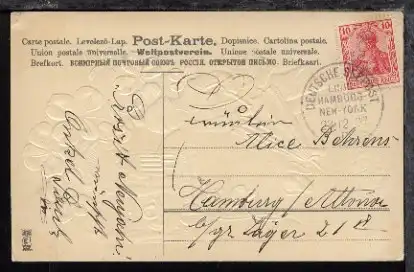 Carte postale. Levelező-Lap. Post-Karte. Dopisnice. Cartolina postale.
Union postale universelle. Weltpostverein. Unione postale universale.
Brefkort. ВСЕМІРНЫЙ ПОЧТОВЫЙ СОЮЗЪ. РОССІЯ. ОТКРЫТОЕ ПИСЬМО. Briefkaart.
10 10
DEUTSCHE SEEPOST
LINIE
HAMBURG
NEW-YORK
Fräulein
Alice Behrens
Hamburg / Altona
gr. Jäger 21
Prosit Neujahr!
wünscht
Onkel